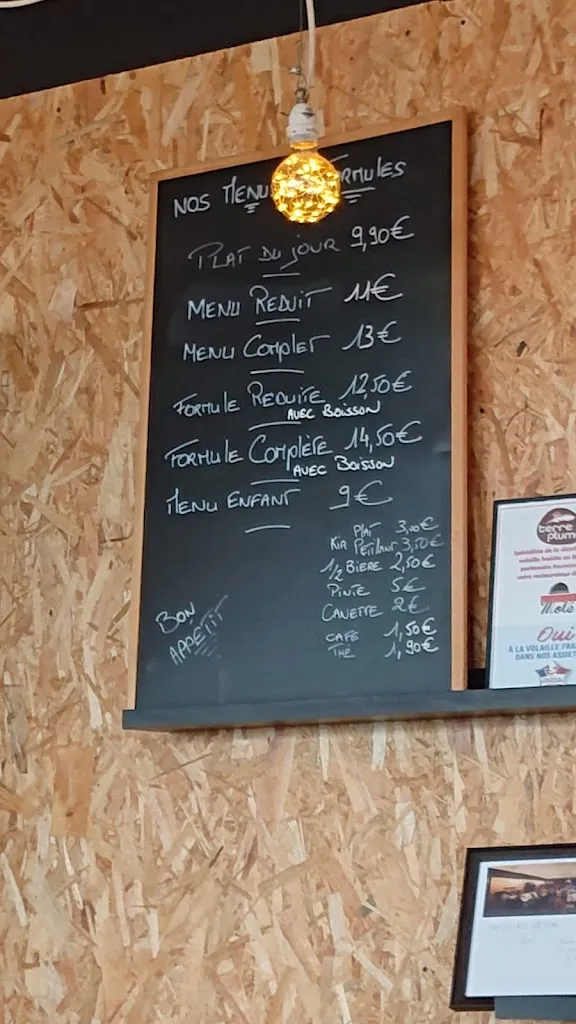 NOS MENU RMULES
PLAT DU JOUR 9,90€
MENU REDUIT 11€
MENU COMPLET 13€
FORMULE REDUITE 12,50€
AVEC BOISSON
FORMULE COMPLÈTE 14,50€
AVEC BOISSON
MENU ENFANT 9€
KIR PETILLANT 3,50€
1/2 BIERE 2,50€
PINTE 5€
CANETTE 2€
CAFE 1,50€
THE 1,90€
BON
APPETIT
terre
plum
Oui
À LA VOLAILLE FRA
DANS NOS ASSIET